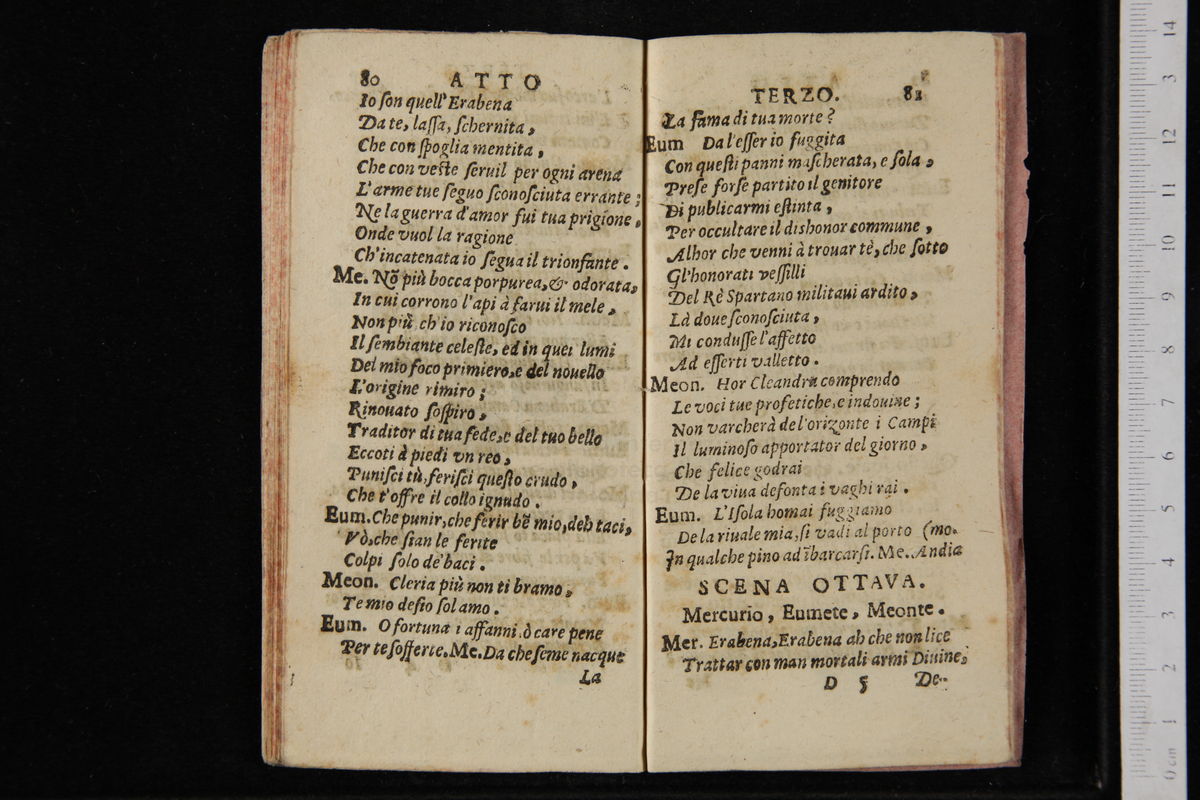 80 ATTO
Io son quell'Erabena
Da te, lassa, schernita,
Che con spoglia mentita,
Che con veste seruil per ogni arena
L'arme tue seguo sconosciuta errante;
Ne la guerra d'amor fui tua prigione,
Onde vuol la ragione
Ch'incatenata io segua il trionfante.
Me. Nõ più bocca porpurea, & odorata,
In cui corrono l'api à farui il mele,
Non più ch'io riconosco
Il sembiante celeste, ed in quei lumi
Del mio foco primiero, e del nouello
L'origine rimiro;
Rinouato sospiro,
Traditor di tua fede, e del tuo bello
Eccoti à piedi vn reo,
Punisci tù, ferisci questo crudo,
Che t'offre il collo ignudo.
Eum. Che punir, che ferir bẽ mio, deh taci,
Vò, che sian le ferite
Colpi solo de' baci.
Meon. Cleria più non ti bramo,
Te mio desio sol amo.
Eum. O fortuna i affanni, ò care pene
Per te sofferte. Me. Da che seme nacque
La
TERZO. 81
La fama di tua morte?
Eum Da l'esser io fuggita
Con questi panni mascherata, e sola,
Prese forse partito il genitore
Di publicarmi estinta,
Per occultare il dishonor commune,
Alhor che venni à trouar tè, che sotto
Gl'honorati vessilli
Del Rè Spartano militaui ardito,
Là doue sconosciuta,
Mi condusse l'affetto
Ad esserti valletto.
Meon. Hor Cleandra comprendo
Le voci tue profetiche, e indouine;
Non varcherà de l'orizonte i Campi
Il luminoso apportator del giorno,
Che felice godrai
De la viua defonta i vaghi rai.
Eum. L'Isola homai fuggiamo
De la riuale mia, si vadi al porto (mo.
In qualche pino ad ĩbarcarsi. Me. Andia
SCENA OTTAVA.
Mercurio, Eumete, Meonte.
Mer. Erabena, Erabena ah che non lice
Trattar con man mortali armi Diuine,
D 5 De
14
3
12
11
10
9
8
7
6
5
4
3
2
1
0 cm